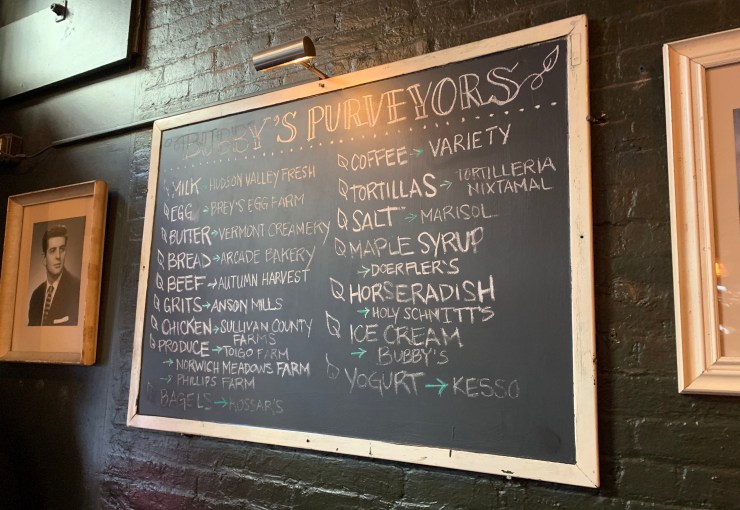 BUBBY'S PURVEYORS
MILK → HUDSON VALLEY FRESH
EGG → BREY'S EGG FARM
BUTTER → VERMONT CREAMERY
BREAD → ARCADE BAKERY
BEEF → AUTUMN HARVEST
GRITS → ANSON MILLS
CHICKEN → SULLIVAN COUNTY
FARMS
PRODUCE → TOIGO FARM
→ NORWICH MEADOWS FARM
→ PHILLIPS FARM
BAGELS → KOSSAR'S
COFFEE → VARIETY
TORTILLAS → TORTILLERIA
NIXTAMAL
SALT → MARISOL
MAPLE SYRUP
→ DOERFLER'S
HORSERADISH
→ HOLY SCHMITT'S
ICE CREAM
→ BUBBY'S
YOGURT → KESSO